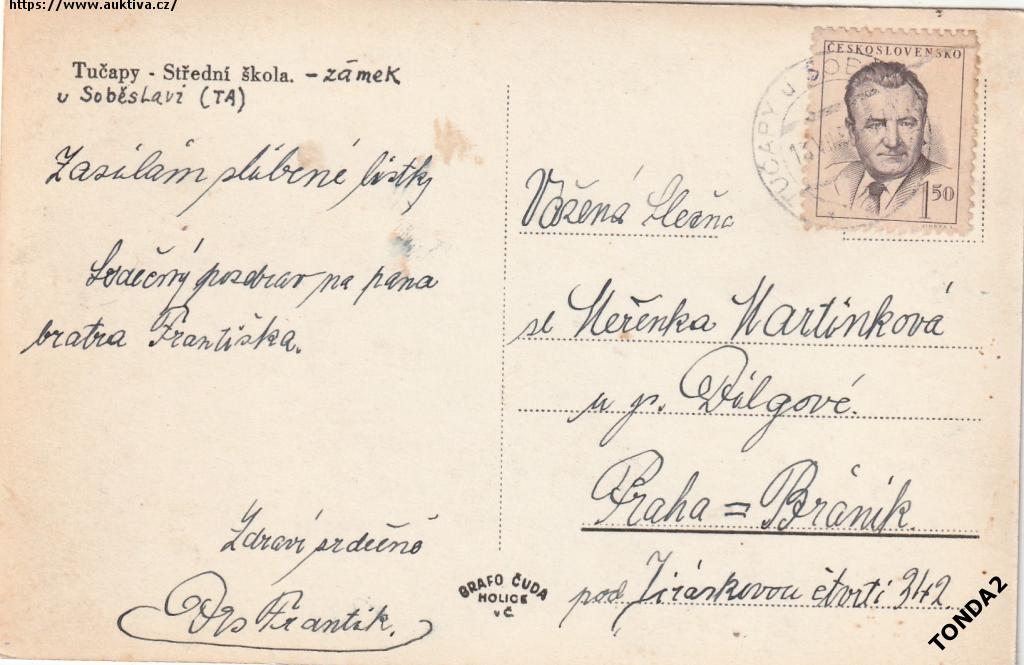 https://www.auktiva.cz/
Tučapy - Střední škola. - zámek
u Soběslavi (TA)
Zasílám slíbené lístky
Srdečný pozdrav na pana
bratra Františka.
Zdraví srdečně
Frantík.
GRAFO ČUDA
HOLICE
v Č.
ČESKOSLOVENSKO
1 50
TUČAPY u SOB
Vážená slečna
sl Měřenka Martínková
u p. Dólgové.
Praha = Bráník.
pod Jiráskovou čtvrtí 342.
TONDA2